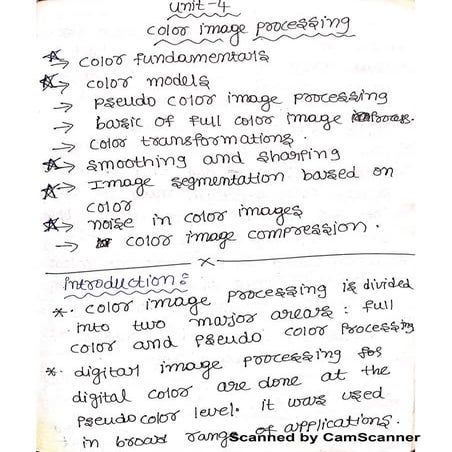 Unit-4
color image processing
☆→ color fundamentals
☆→ color models
→ pseudo color image processing
→ basic of full color image process.
→ color transformations.
☆→ smoothing and sharping
☆→ Image segmentation based on
color
☆→ noise in color images
→ color image compression.
x
Introduction:
*. color image processing is divided
into two major areas: full
color and pseudo color processing
*. digital image processing for
digital color are done at the
pseudo color level. it was used
in broad range of applications.
Scanned by CamScanner